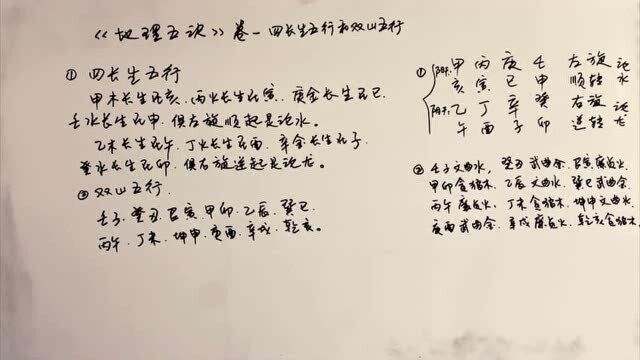 《地理五诀》卷一 四长生五行和双山五行
① 四长生五行
甲木长生在亥、丙火长生在寅、庚金长生在巳、
壬水长生在申、俱左旋顺起是论水。
乙木长生在午、丁火长生在酉、辛金长生在子、
癸水长生在卯、俱右旋逆起是论龙。
② 双山五行、
壬子、癸丑、艮寅、甲卯、乙辰、巽巳、
丙午、丁未、坤申、庚酉、辛戌、乾亥。
① 阳干 甲 丙 庚 壬 左旋 论
亥 寅 巳 申 顺转 水
阴干 乙 丁 辛 癸 右旋 论
午 酉 子 卯 逆转 龙
② 壬子文曲水, 癸丑武曲金、艮寅廉贞火、
甲卯贪狼木、乙辰文曲水、巽巳武曲金、
丙午廉贞火、丁未贪狼木、坤申文曲水、
庚酉武曲金、辛戌廉贞火、乾亥贪狼木、